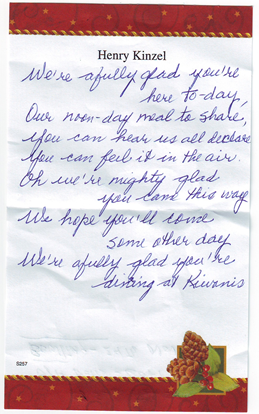 Henry Kinzel
We're afully glad you're
here to-day,
Our noon-day meal to share,
You can hear us all declare
You can feel it in the air.
Oh we're mighty glad
you came this way
We hope you'll come
some other day
We're afully glad you're
dining at Kiwanis
S257